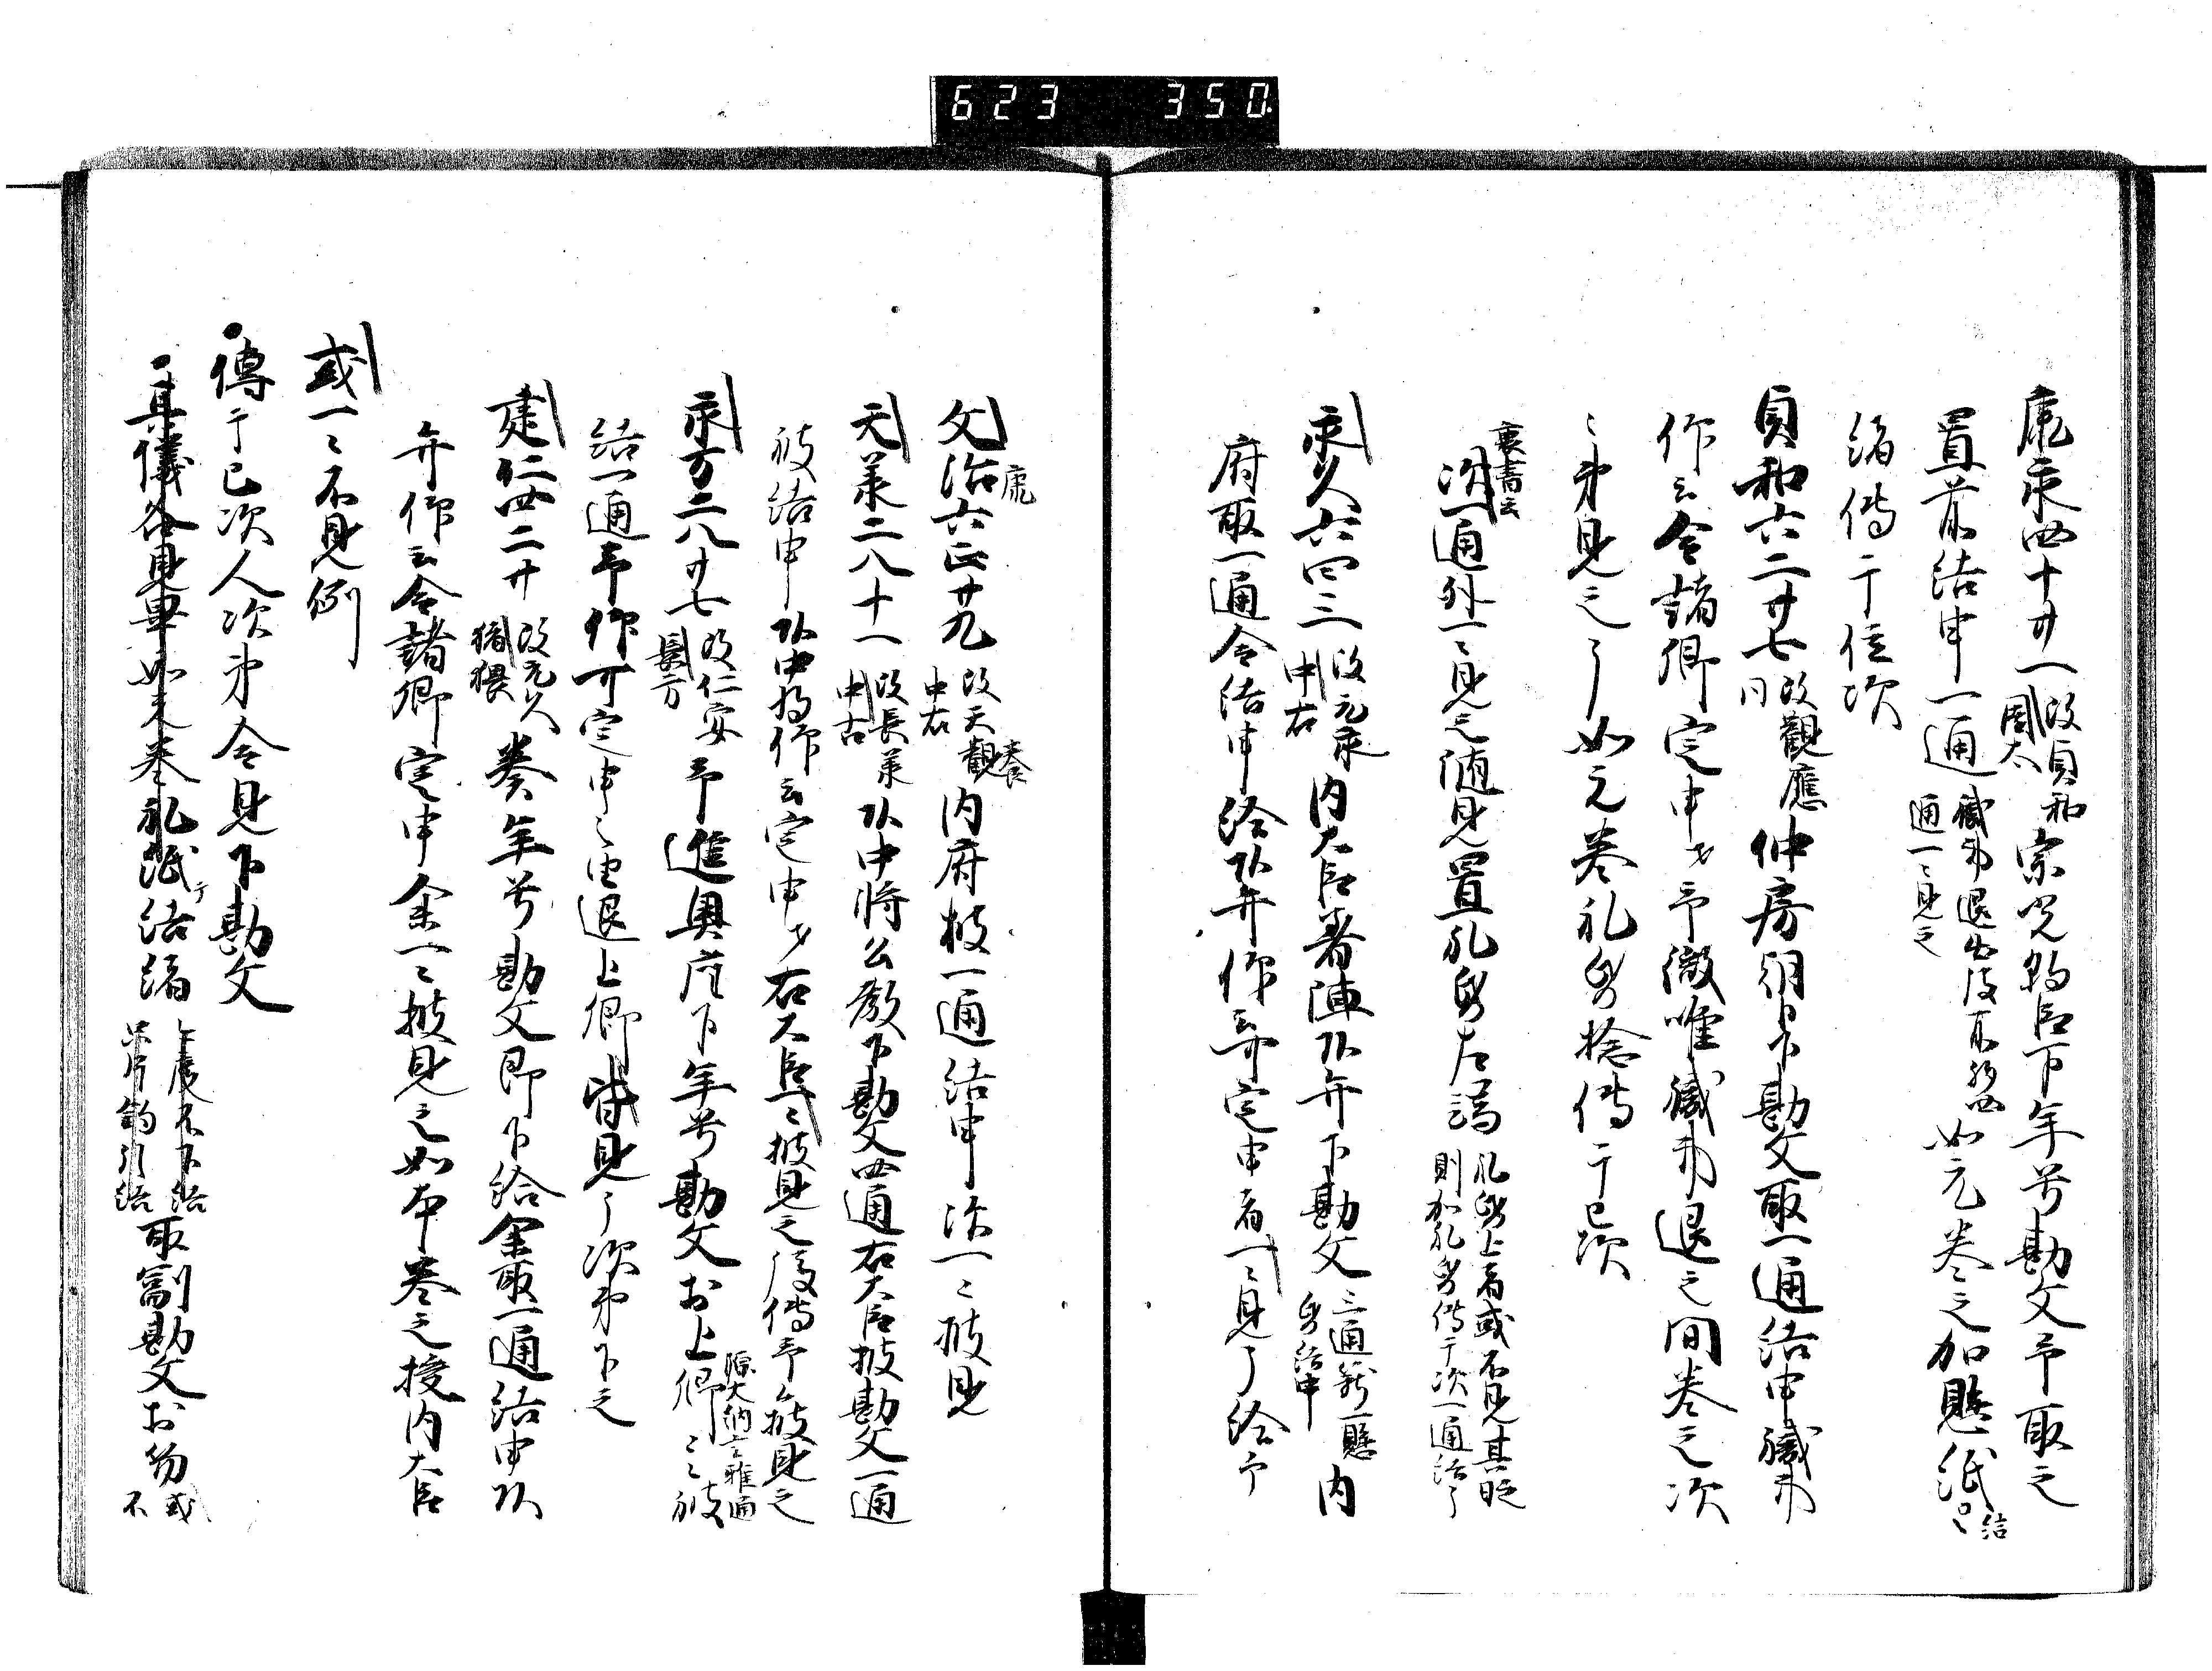 623 350
康永四十廿一改貞和園太宗光朝臣下年号勘文予取之
置前結申一通職事退出後所残四通一々見之如元巻之加懸紙結
緒傳于位次
貞和六二廿七改観應同仲房朝臣下勘文取一通結申職事
仰云令諸卿定申ヨ予微唯職事退之間巻之次
々第見之了如元巻礼紙捻傳于已次
裏書云
次一通外一々見之随見置礼紙左端礼紙上者或不見其眼則加礼紙傳于次一通結了
永久六四三改元永中右内大臣著陣頭弁下勘文三通新懸紙結申内
府取一通令結申給頭弁仰云可定申者一々見了給予
文治六正廿九改天観中右内府披一通結申次一々披見
康
養
天承二八十一改長承中右頭中将公教下勘文四通右大臣披勘文一通
被結申頭中将仰云定申ヨ右大臣々披見之後傳予々披見之
永万二八廿七改仁安長方予進奥座下年号勘文於上卿源大納言雅通々披
結一通予仰可定申之由退上卿皆見了次第下之
建仁四二廿改元久猪猥奏年号勘文即下給余取一通結申頭
弁仰云令諸卿定申余一々披見之如本巻之授内大臣
或一々不見例
傳于已次人次第令見下勘文
其儀各見畢如元巻礼紙于結緒上度不下結只片鈎引結取副勘文於笏或不